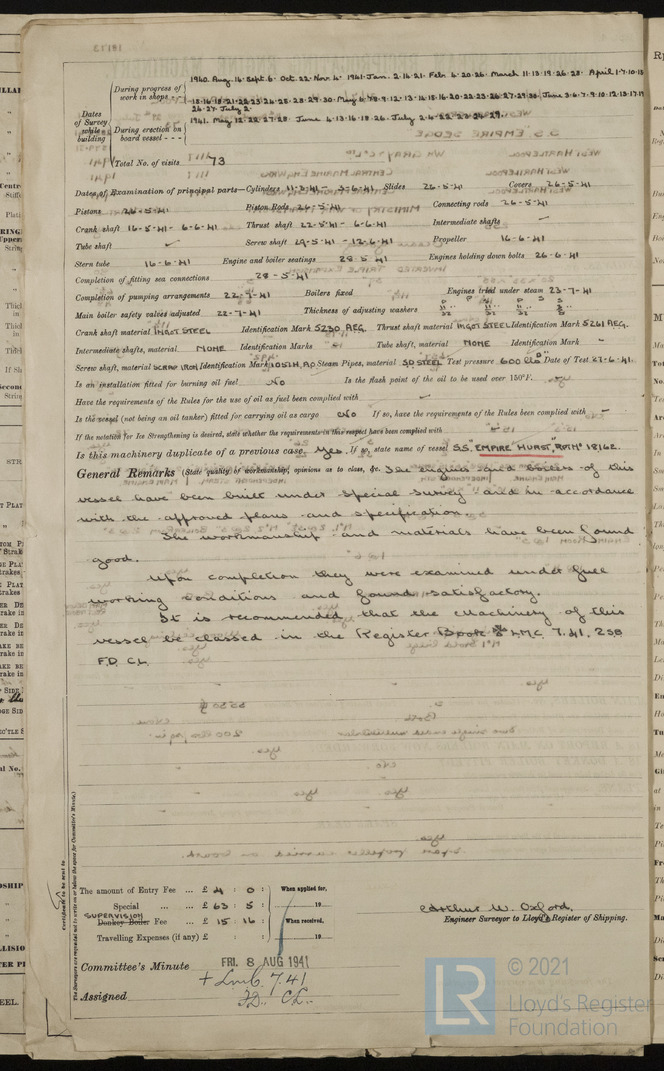 1940. Aug. 16. Sept. 6. Oct. 22. Nov. 4. 1941. Jan. 2. 14. 21. Feb. 4. 20. 26. March 11. 13. 19. 26. 28. April 1. 7. 10.
During progress of work in shops - -
27. July 2.
Dates of Survey while building
During erection on board vessel - - -
1941. May 12. 22. 27. 28. June 4. 13. 16. 18. 26. July
Total No. of visits 73
Dates of Examination of principal parts—Cylinders Slides 26-5-41 Covers 26-5-41
Pistons 26-5-41 Piston Rods 26-5-41 Connecting rods 26-5-41
Crank shaft 16-5-41 - 6-6-41 Thrust shaft 22-5-41 - 6-6-41 Intermediate shafts ✓
Tube shaft ✓ Screw shaft 29-5-41 - 12-6-41 Propeller 16-6-41
Stern tube 16-6-41 Engine and boiler seatings 28-5-41 Engines holding down bolts 26-6-41
Completion of fitting sea connections 28-5-41
Completion of pumping arrangements 22-7-41 Boilers fixed Engines tried under steam 23-7-41
Main boiler safety valves adjusted 22-7-41 Thickness of adjusting washers
Crank shaft material INGOT STEEL Identification Mark 5230 AEG. Thrust shaft material INGOT STEEL Identification Mark 5261 AEG.
Intermediate shafts, material NONE Identification Marks Tube shaft, material NONE Identification Mark -
Screw shaft, material SCRAP IRON Identification Mark Steam Pipes, material SD STEEL Test pressure 600 lbs Date of Test 27-6-41.
Is an installation fitted for burning oil fuel No Is the flash point of the oil to be used over 150°F. -
Have the requirements of the Rules for the use of oil as fuel been complied with ✓
Is the vessel (not being an oil tanker) fitted for carrying oil as cargo No If so, have the requirements of the Rules been complied with -
If the notation for Ice Strengthening is desired, state whether the requirements in this respect have been complied with
Is this machinery duplicate of a previous case Yes. If so, state name of vessel S.S. "EMPIRE HURST", RPT No 18162.
General Remarks (State quality of workmanship, opinions as to class, &c. The engines and boilers of this
vessel have been built under special survey and in accordance
with the approved plans and specification.
The workmanship and materials have been found
good.
Upon completion they were examined under full
working conditions and found satisfactory.
It is recommended that the machinery of this
vessel be classed in the Register Book LMC 7.41, 2SB
F.D. C.L.
Certificate to be sent to
The Surveyors are requested not to write on or below the space for Committee's Minute.
The amount of Entry Fee ... £ 4 : 0 : When applied for,
Special ... ... £ 63 : 5 : 19
SUPERVISION
Donkey Boiler Fee ... £ 15 : 16 : When received,
Travelling Expenses (if any) £ : : 19
Arthur W. Oxford.
Engineer Surveyor to Lloyd's Register of Shipping.
Committee's Minute FRI. 8 AUG 1941
+ Lmc. 7.41
Assigned F.D. CL.
LR © 2021
Lloyd's Register
Foundation